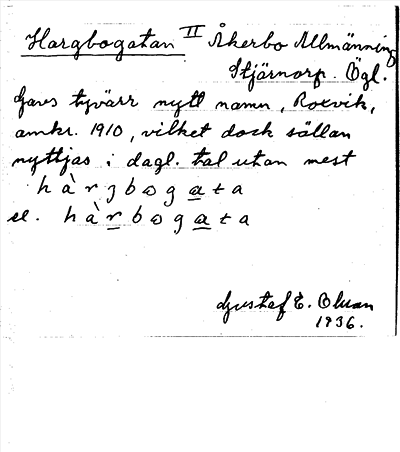 Hargbogatan II Åkerbo Allmänning
Stjärnorp. Ögl.
Gavs tyvärr nytt namn, Roxvik,
omkr. 1910, vilket dock sällan
nyttjas i dagl. tal utan mest
hàrgbogata
el. hàrbogata
Gustaf E. Olsson
1936.